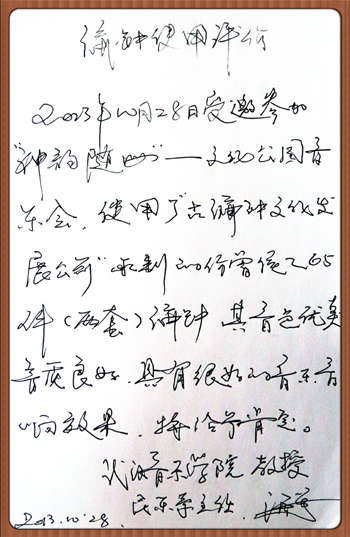 编钟使用评价
2013年10月28日受邀参加
“神韵随州”——文化公园音
乐会，使用了“古编钟文化发
展公司”承制的仿曾侯乙65
件（两套）编钟 其音色优美
音质良好，具有很好的音乐音
响效果，特给予肯定。
武汉音乐学院 教授
民乐系主任
2013.10.28.